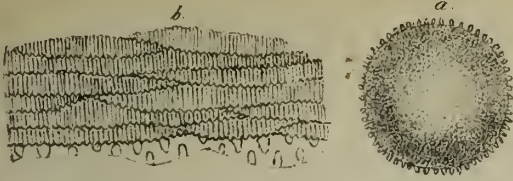 b.
a.